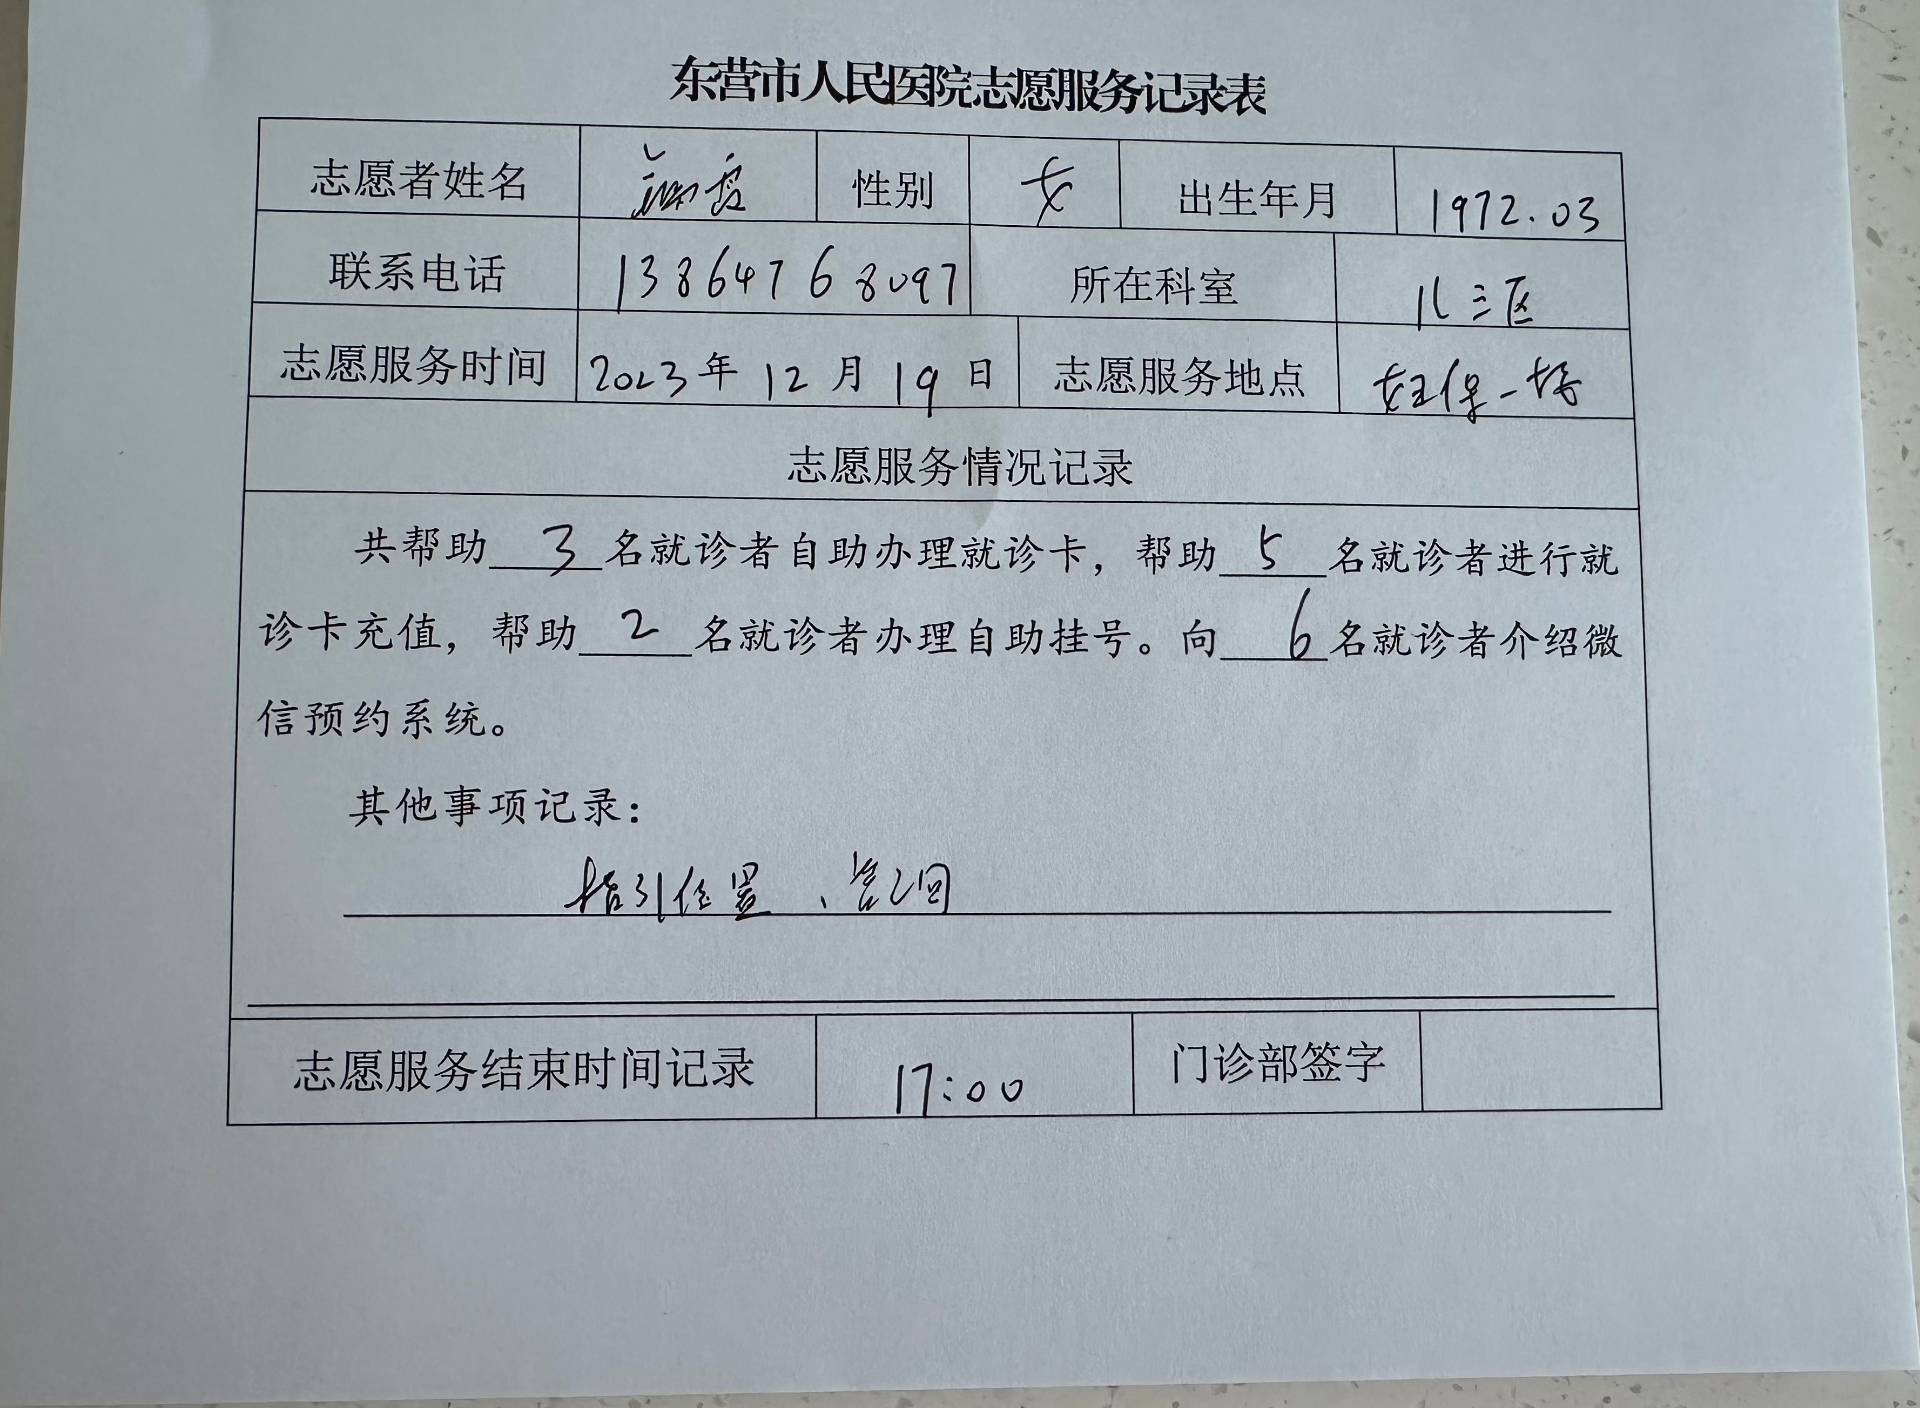 东营市人民医院志愿服务记录表
志愿者姓名 性别 女 出生年月 1972.03
联系电话 13864768097 所在科室 儿三区
志愿服务时间 2023年12月19日 志愿服务地点 妇保一楼
志愿服务情况记录
共帮助 3 名就诊者自助办理就诊卡，帮助 5 名就诊者进行就
诊卡充值，帮助 2 名就诊者办理自助挂号。向 6 名就诊者介绍微
信预约系统。
其他事项记录：
指引位置、
志愿服务结束时间记录 17:00 门诊部签字